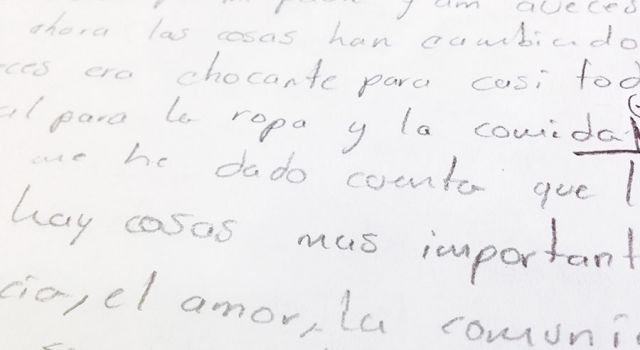 y aun aveces
ahora las cosas han cambiado
ces era chocante para casi tod
al para la ropa y la comida
me he dado cuenta que l
hay cosas mas important
cia, el amor, la comuni